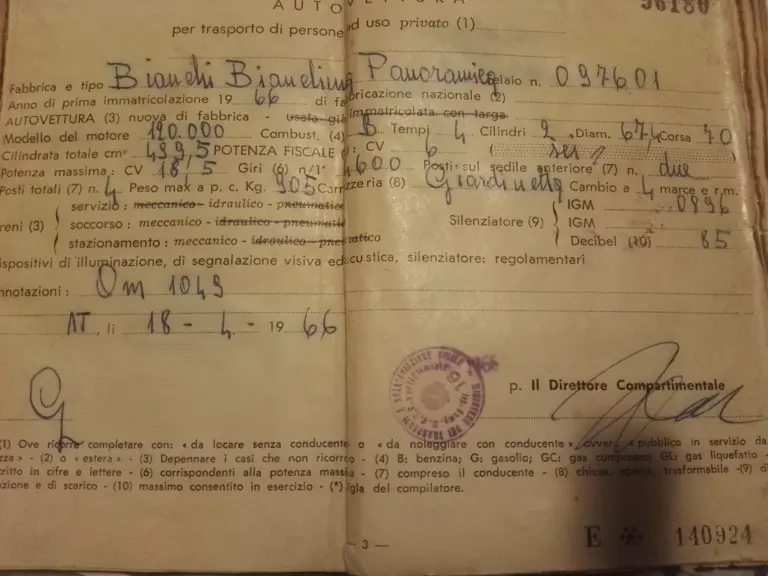 AUTOVETTURA 56180
per trasporto di persone ad uso privato (1)
Fabbrica e tipo Bianchi Bianchina Panoramica Telaio n. 097601
Anno di prima immatricolazione 19 66 di fabbricazione nazionale (2)
AUTOVETTURA (3) nuova di fabbrica - usata già immatricolata con targa
Modello del motore 120.000 Combust. (4) B Tempi 4 Cilindri 2 Diam. 67,4 Corsa 70
Cilindrata totale cm³ 499,5 POTENZA FISCALE CV 6 ( sei )
Potenza massima: CV 18,5 Giri (6) n/1' 4600 Posti sul sedile anteriore (7) n. due
Posti totali (7) n. 4 Peso max a p. c. Kg. 905 Carrozzeria (8) Giardinetta Cambio a 4 marce e r.m.
servizio: meccanico - idraulico - pneumatico IGM 0896
reni (3) soccorso: meccanico - idraulico - pneumatico Silenziatore (9) IGM
stazionamento: meccanico - idraulico - pneumatico Decibel (10) 85
ispositivi di illuminazione, di segnalazione visiva ed acustica, silenziatore: regolamentari
nnotazioni: Om 1049
AT, lì 18 - 4 - 19 66
p. Il Direttore Compartimentale
(1) Ove ricorre completare con: « da locare senza conducente o « da noleggiare con conducente » ovvero « pubblico in servizio da
zza » - (2) o « estera » - (3) Depennare i casi che non ricorrono - (4) B: benzina; G: gasolio; GC: gas compresso; GL: gas liquefatto -
critto in cifre e lettere - (6) corrispondenti alla potenza massima - (7) compreso il conducente - (8) chiusa, aperta, trasformabile -(9) di
zione e di scarico - (10) massimo consentito in esercizio - (*) sigla del compilatore.
— 3 —
E * 140924